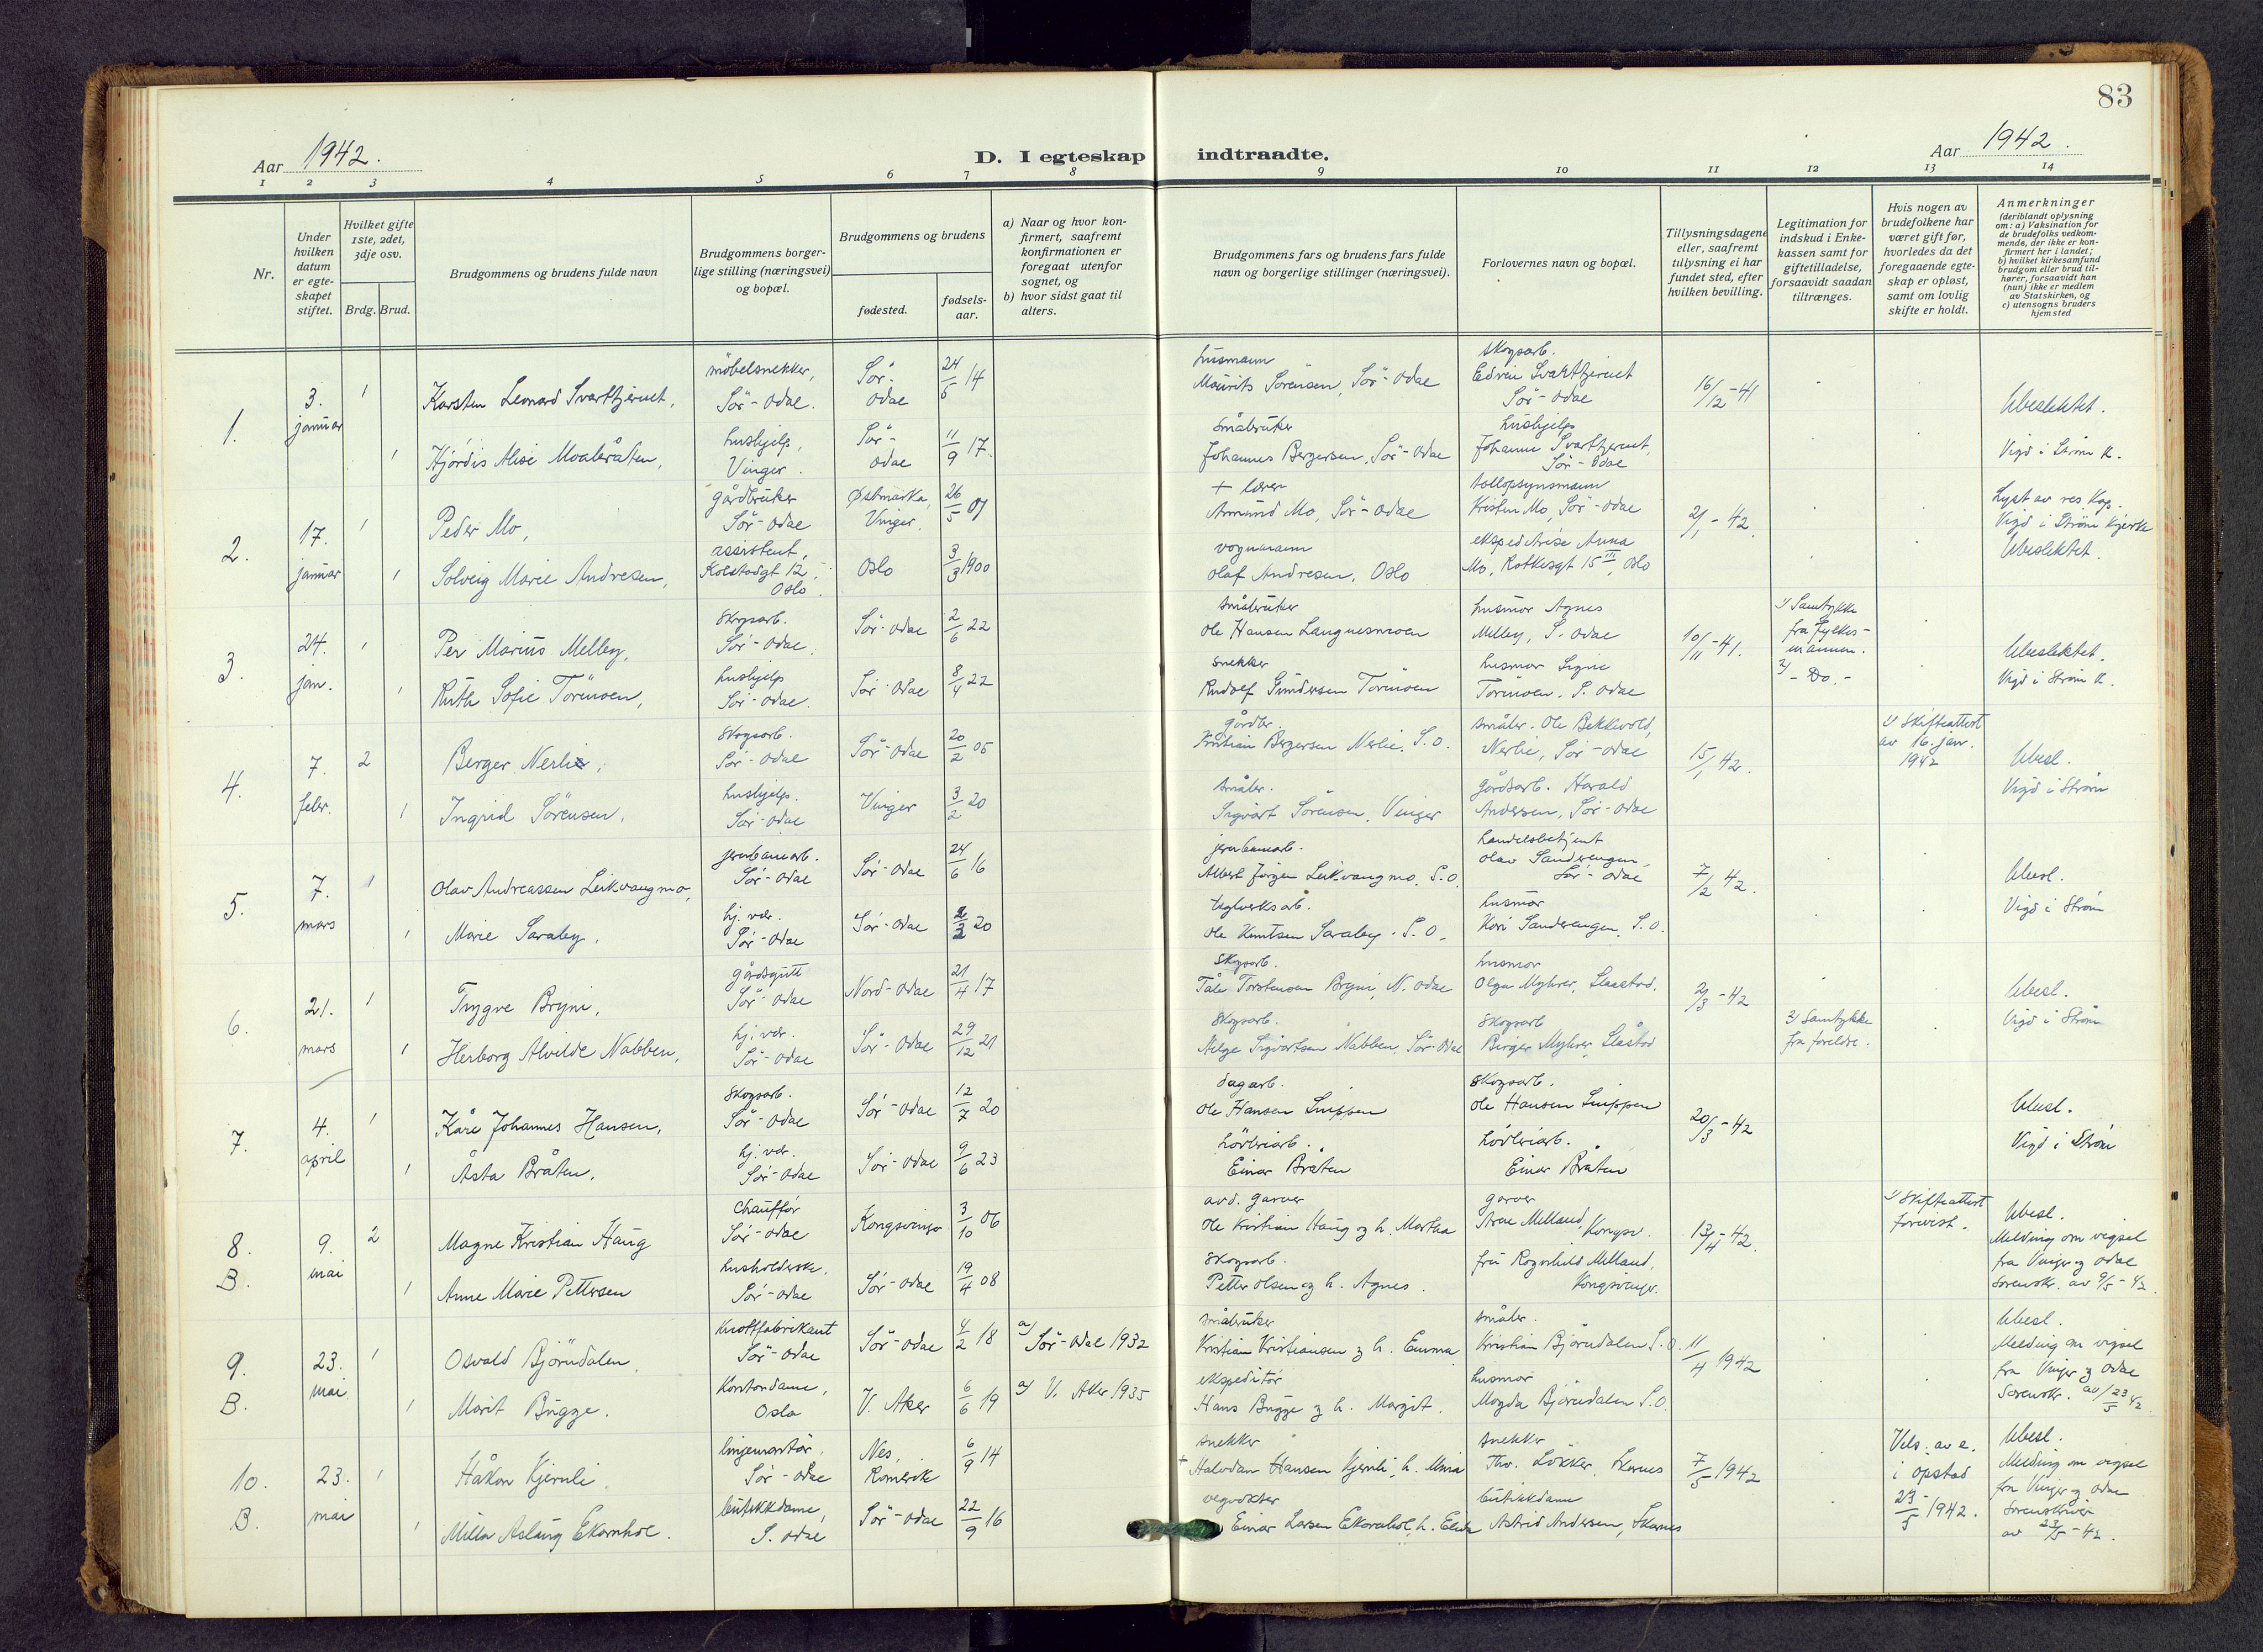 83
Aar 1942.
D. I egteskap indtraadte.
Aar 1942.
1 2 3 4 5 6 7 8 9 10 11 12 13 14
Nr.
Under hvilken datum er egteskapet stiftet.
Hvilket gifte 1ste, 2det, 3dje osv.
Brdg. Brud.
Brudgommens og brudens fulde navn
Brudgommens borgerlige stilling (næringsvei) og bopæl.
Brudgommens og brudens
fødested.
fødselsaar.
a) Naar og hvor konfirmert, saafremt konfirmationen er foregaat utenfor sognet, og
b) hvor sidst gaat til alters.
Brudgommens fars og brudens fars fulde navn og borgerlige stillinger (næringsvei).
Forlovernes navn og bopæl.
Tillysningsdagene eller, saafremt tillysning ei har fundet sted, efter hvilken bevilling.
Legitimation for indskud i Enkekassen samt for giftetilladelse, forsaavidt saadan tiltrænges.
Hvis nogen av brudefolkene har været gift før, hvorledes da det foregaaende egteskap er opløst, samt om lovlig skifte er holdt.
Anmerkninger
(deriblandt oplysning om: a) Vaksination for de brudefolks vedkommende, der ikke er konfirmert her i landet;
b) hvilket kirkesamfund brudgom eller brud tilhører, forsaavidt han (hun) ikke er medlem av Statskirken, og
c) utensogns bruders hjemsted
1. 3. januar 1
Karsten Leonard Svarttjernet, møbelsnekker, Sør-Odal. Sør-Odal 24/5 14
husmann Maurits Sørensen, Sør-Odal
skogsarb. Edvin Svarttjernet Sør-Odal
16/12-41
Ubeslektet.
1 Hjördis Alise Moabråten, hushjelp, Vinger. Sør-Odal 11/9 17.
småbruker Johannes Bergersen, Sör-Odal
hushjelp Johanne Svarttjernet, Sør-Odal
Vigd i Strøm k.
2. 17. januar 1
Peder Mo, gårdbruker Sør-Odal Østmarka, Vinger. 26/5 07
+ lærer Amund Mo, Sør-Odal
tollopsynsmann Kristen Mo, Sør-Odal
2/1-42.
Lyst av res. kap. Vigd i Strøm kjerke
1 Solveig Marie Andresen, assistent, Kolstadgt 12, Oslo. Oslo 3/3 1900
vognmann Olaf Andresen, Oslo
ekspeditrise Anna Mo, Rathkesgt 15 III, Oslo
Ubeslektet.
3. 24. jan. 1
Per Marius Melby, skogsarb. Sør-Odal. Sør-Odal 2/6 22
småbruker Ole Hansen Langnesmoen
husmor Agnes Melby, S. Odal
10/11-41.
1) Samtykke fra fylkesmannen.
2) - Do. -
Ubeslektet.
1 Ruth Sofie Tørmoen, hushjelp Sør-Odal. Sør-Odal 8/4 22
snekker Rudolf Gundersen Tørmoen
husmor Signe Tørmoen. S. Odal
Vigd i Strøm k.
4. 7. febr. 2
Berger Nerli, skogsarb. Sør-Odal Sør-Odal 20/2 05
gårdbr. Kristian Bergersen Nerlie, S. O.
småbr. Ole Bekkevold, Nerlie, Sør-Odal
15/1 42.
1) Skifteattest av 16. jan. 1942
Ubesl.
1 Ingrid Sørensen, hushjelp. Sør-Odal Vinger 3/2 20
småbr. Sigvart Sørensen, Vinger
gårdsarb. Harald Andersen, Sør-Odal
Vigd i Strøm
5. 7. mars 1
Olav Andreassen Leikvangmo, jernbanearb. Sør-Odal Sør-Odal 24/6 16
jernbanearb. Albert Jörgen Leikvangmo, S.O.
handelsbetjent Olav Sanderengen, Sør-Odal
7/2 42.
Ubesl.
1 Marie Saraby, hj. vær. Sør-Odal Sør-Odal 2/3 20
teglverksarb. Ole Knutsen Saraby. S.O.
husmor Kari Sanderengen, S.O.
Vigd i Strøm
6. 21. mars 1
Trygve Bryni, gårdsgutt Sør-Odal Nord-Odal 21/4 17
skogsarb. Tåle Torstensen Bryni, N. Odal
husmor Olga Myhrer, Slaastad.
2/3-42
Ubesl.
1 Herborg Alvilde Nabben, hj. vær. Sør-Odal Sør-Odal 29/12 21
skogsarb. Helge Sigvartsen Nabben, Sør-Odal
skogsarb Birger Myhrer, Slåstad
3) Samtykke fra foreldre.
Vigd i Strøm
7. 4. april 1
Kåre Johannes Hansen, skogsarb. Sør-Odal Sør-Odal 12/7 20
dagarb. Ole Hansen Snippen
skogsarb. Ole Hansen Snippen
20/3-42
Ubesl.
1 Åsta Bråten, hj. vær. Sør-Odal Sør-Odal 9/6 23
Einar Bråten
Einar Bråten
Vigd i Strøm
8. B. 9. mai 2
Magne Kristian Haug chauffør Sør-Odal Kongsvinger 3/10 06
avd. garver Ole Kristian Haug og h. Martha
garver Arne Melland, Kongsv.
13/4-42.
1) Skifteattest forevist.
Ubesl.
Melding om vigsel fra Vinger og Odal Sorenskr. av 9/5-42.
1 Anne Marie Pettersen husholderske, Sør-Odal Sør-Odal 19/4 08
skogsarb. Petter Olsen og h. Agnes.
fru Ragnhild Melland, Kongsvinger.
9. B. 23. mai 1
Osvald Bjørndalen, knottfabrikant Sør-Odal Sør-Odal 4/2 18 a) Sør-Odal 1932
småbruker Kristian Kristiansen og h. Emma
småbr. Kristian Bjørndalen S.O.
11/4 1942
Ubesl.
Melding om vigsel fra Vinger og Odal Sorenskr. av 23/5 42
1 Marit Bugge. kontordame, Oslo V. Aker 6/6 19 a) V. Aker 1935
ekspeditør Hans Bugge og h. Margit.
husmor Magda Bjørndalen S.O.
10. B. 23. mai 1
Håkon Kjernli, linjemontør. Sør-Odal Nes, Romerik 6/9 14
snekker + Halvdan Hansen Kjernli, h. Mina
snekker Thv. Løkker, Skarnes
7/5 1942
Vels. av e. i opstad 23/5 1942.
Ubesl.
Melding om vigsel fra Vinger og Odal Sorenskriver av 23/5-42.
1 Milla Aslaug Ekornhol. butikkdame, S. Odal Sør-Odal 22/9 16
vegvokter Einar Larsen Ekornhol, h.
butikkdame Astrid Andersen, Skarnes